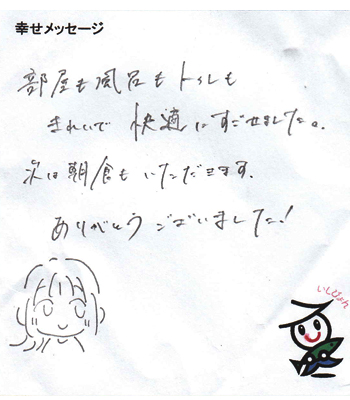 幸せメッセージ
部屋も風呂もトイレも
きれいで快適にすごせました。
次は朝食もいただきます。
ありがとうございました!
いしぴょん